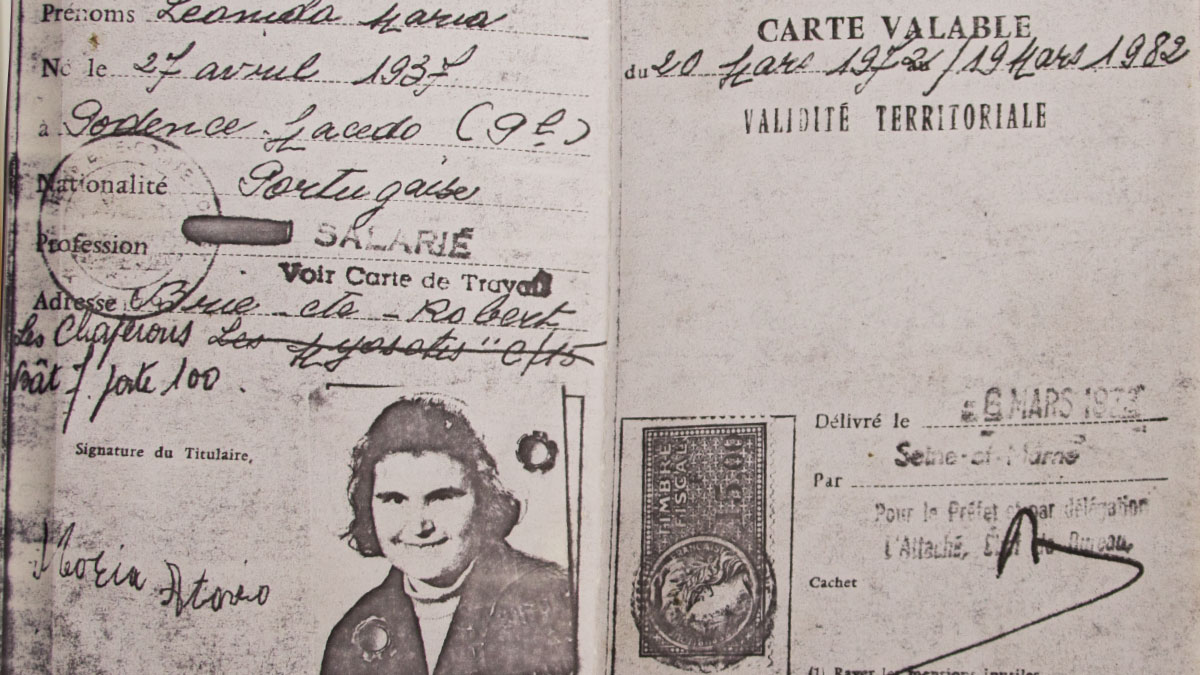 Prénoms Leonida Maria
Né le 27 avril 1937
à Podence Macedo (Pl)
Nationalité Portugaise
Profession SALARIÉ
Voir Carte de Travail
Adresse Brie cte Robert
Les Chaperons Les Myosotis" C/15
Bât 7 porte 100.
Signature du Titulaire,
Maria
CARTE VALABLE
du 20 Mars 1972 au 19 Mars 1982
VALIDITÉ TERRITORIALE
TIMBRE
FISCAL
15,00
Délivré le MARS
Seine-et-Marne
Par
Pour le Préfet et par délégation
L'Attaché, Chef de Bureau,
Cachet
(1) Rayer les mentions inutiles.